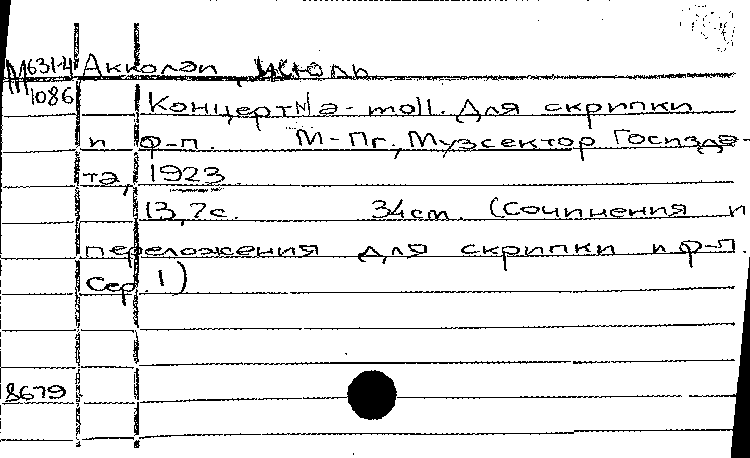 М 631-4
1086
Акколаи, Жюль
Концерт №1 a-moll. Для скрипки
и ф-п. М-Пг., Музсектор Госизда-
та, 1923
13, 7 с. 34 см. (Сочинения и
переложения для скрипки и ф-п.
Сер. 1)
8679